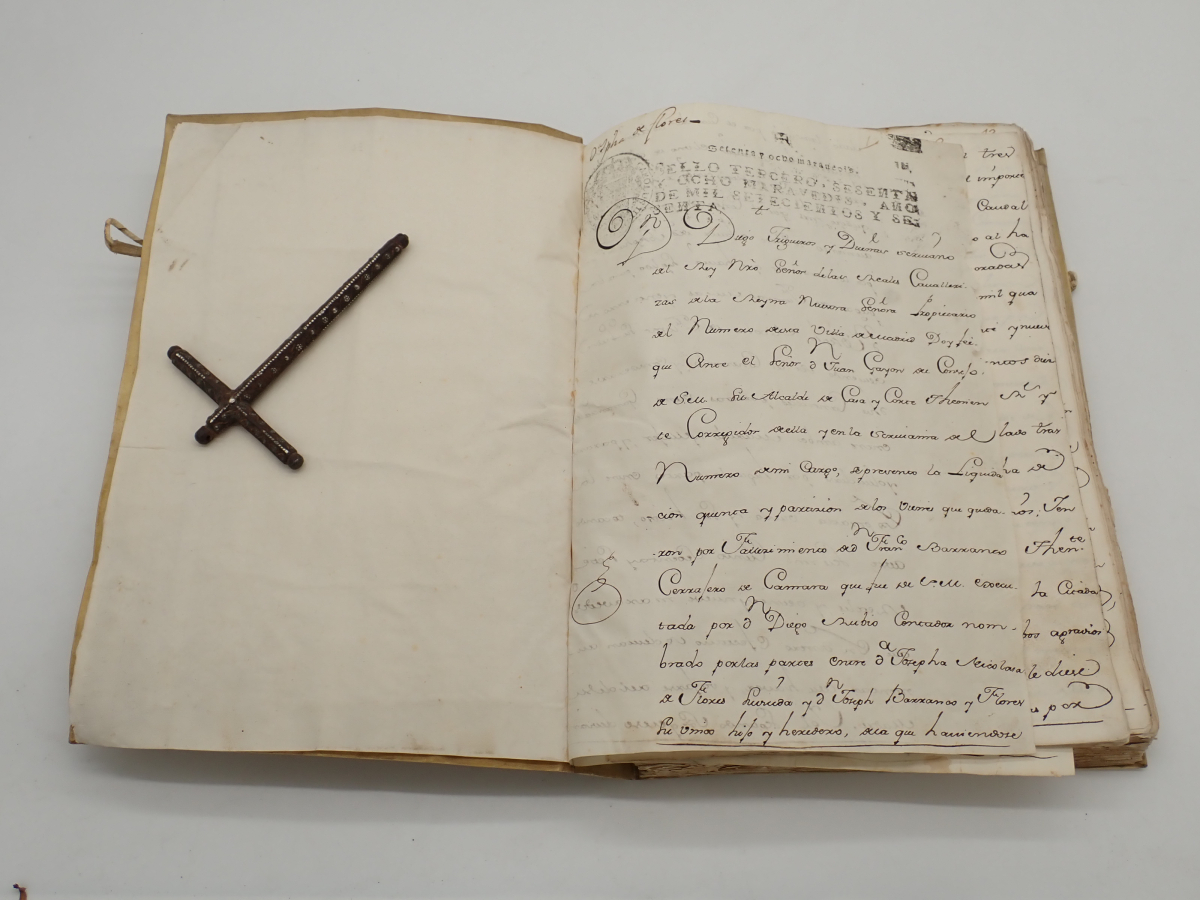 Dª Jpha de flores
Setenta y ocho maravedis.
SELLO TERCERO, SESENTA
Y OCHO MARAVEDIS, AÑO
DE MIL SETECIENTOS Y SE
SENTA.
Dn Diego Trigueros y Dueñas escriuano
del Rey Nrõ Señor de las Reales Cavalleri
zas de la Reyna Nuestra Señora Propietario
del Numero desta Villa de Madrid Doy fee
que Ante el Señor Dn Juan Gayon del Consejo
de S.M. su Alcalde de Casa y Corte Thenien
te Corregidor de ella y en la escriuania del
Numero de mi Cargo, se prevenco la Liquida
cion quenta y particion de los vienes que queda
ron por Fallecimiento de Dn Franco Barranco
Cerrajero de Camara que fue de S.M. execu
tada por Dn Diego Rubio Contador nom-
brado por las partes entre Dª Josepha Nicolasa
de Flores Viuda y Dn Joseph Barranco y Flores
su unico hijo y heredero, dela que haviendose
tres
importe
Caudal
al ha
mil qua
lado tras
Then.te
la Ciudad
los agravios
le diese
por